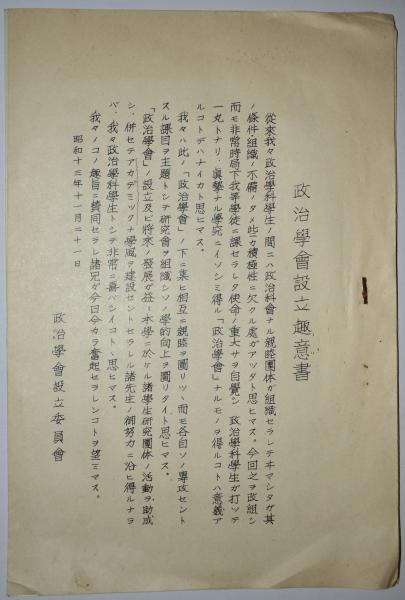 政治學會設立趣意書
從來我々政治學科學生ノ間ニハ政治科會ナル親睦團体ガ組織セラレテヰマシタガ其
ノ條件組織ノ不備ノタメ些カ積極性ニ欠クル處ガアッタト思ヒマス。今回之ヲ改組シ
而モ非常時局下我等學徒ニ課セラレタ使命ノ重大サヲ自覺シ 政治學科學生ガ打ッテ
一丸トナリ、眞摯ナル學究ニイソシミ得ル「政治學會」ナルモノヲ得ルコトハ意義ア
ルコトデハナイカト思ヒマス。
我々ハ此ノ「政治學會」ノ下ニ集ヒ相互ニ親睦ヲ圖リツヽ而モ各自ソノ專攻セント
スル課目ヲ主題トシテ研究會ヲ組織シソノ學的向上ヲ圖リタイト思ヒマス。
「政治學會」ノ設立及ビ將來ノ發展ガ益々本學ニ於ケル諸學生研究團体ノ活動ヲ助成
シ、併セテアカデミックナ學風ヲ建設セントセラレル諸先生ノ御努力ニ沿ヒ得ルナラ
バ、我々政治學科學生トシテ非常ニ喜バシイコトト思ヒマス。
我々ノコノ趣旨ニ賛同セラレ諸兄ガ今日今カラ奮起セラレンコトヲ望ミマス。
昭和十三年十一月二十一日
政治學會設立委員會